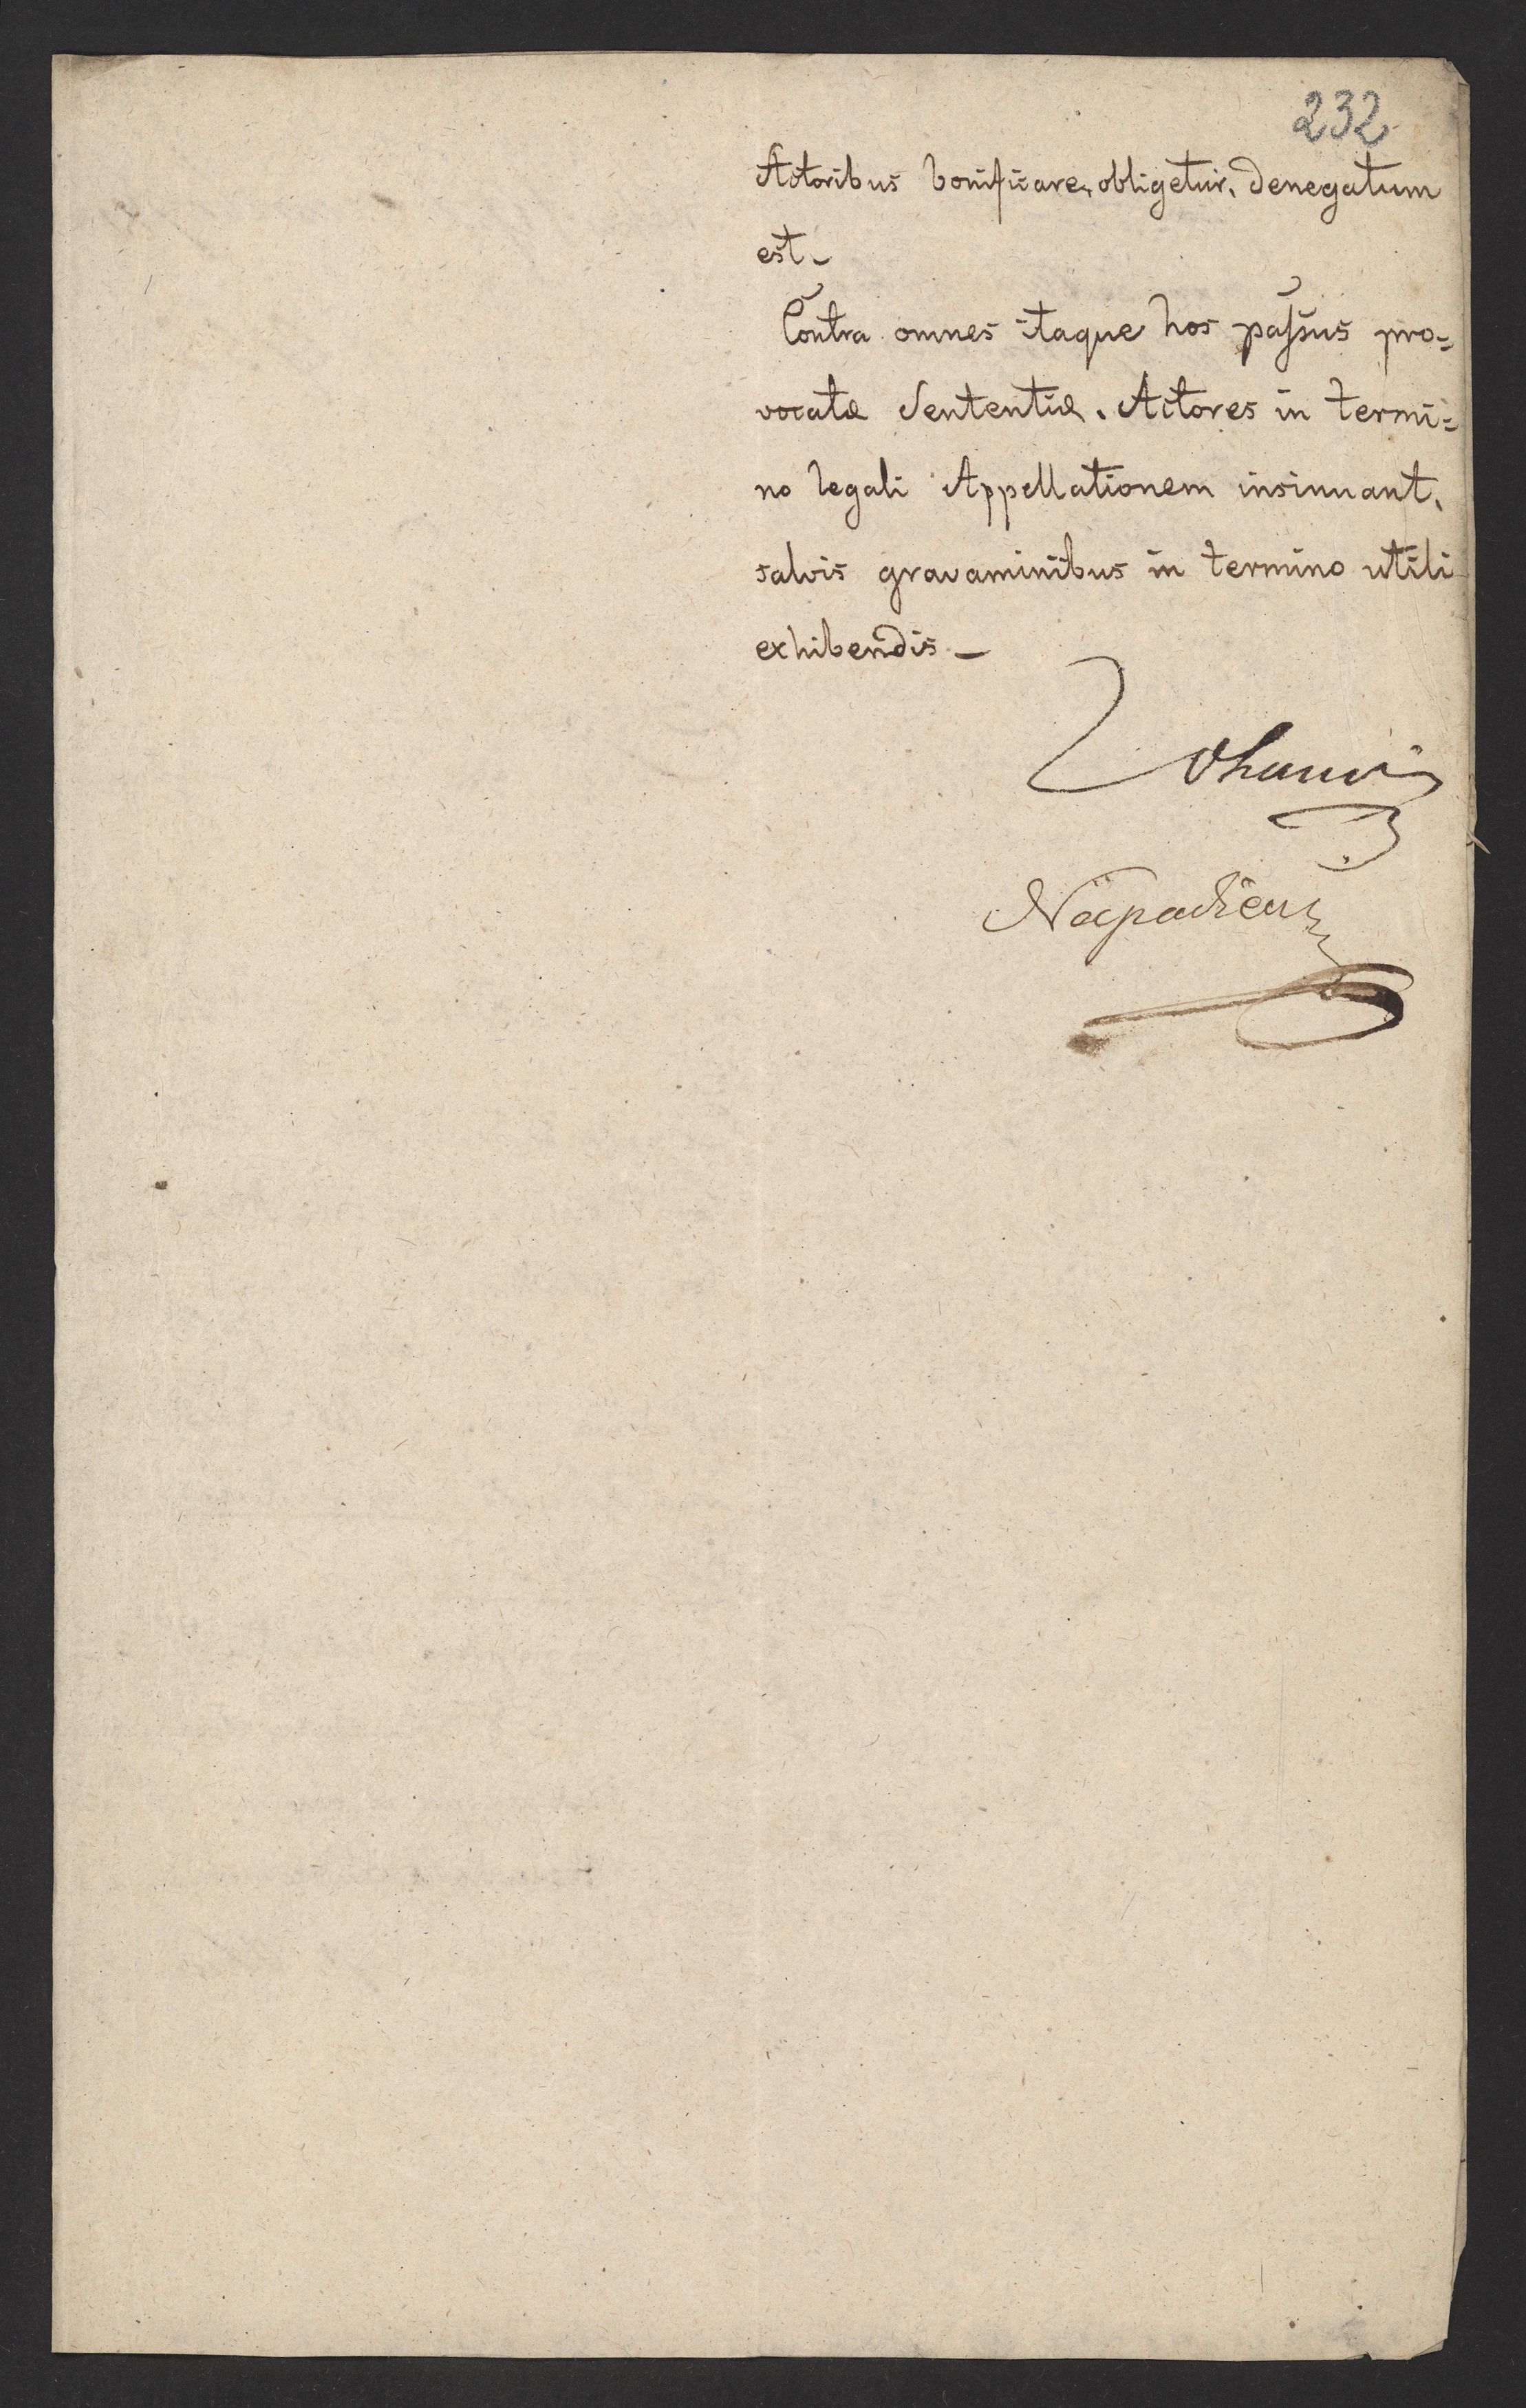 232
Actoribus bonificare, obligetur, denegatum
est –
Contra omnes itaque hos passus pro=
vocatæ Sententiæ, Actores in termi=
no legali Appellationem insinuant,
salvis gravaminibus in termino utili
exhibendis –